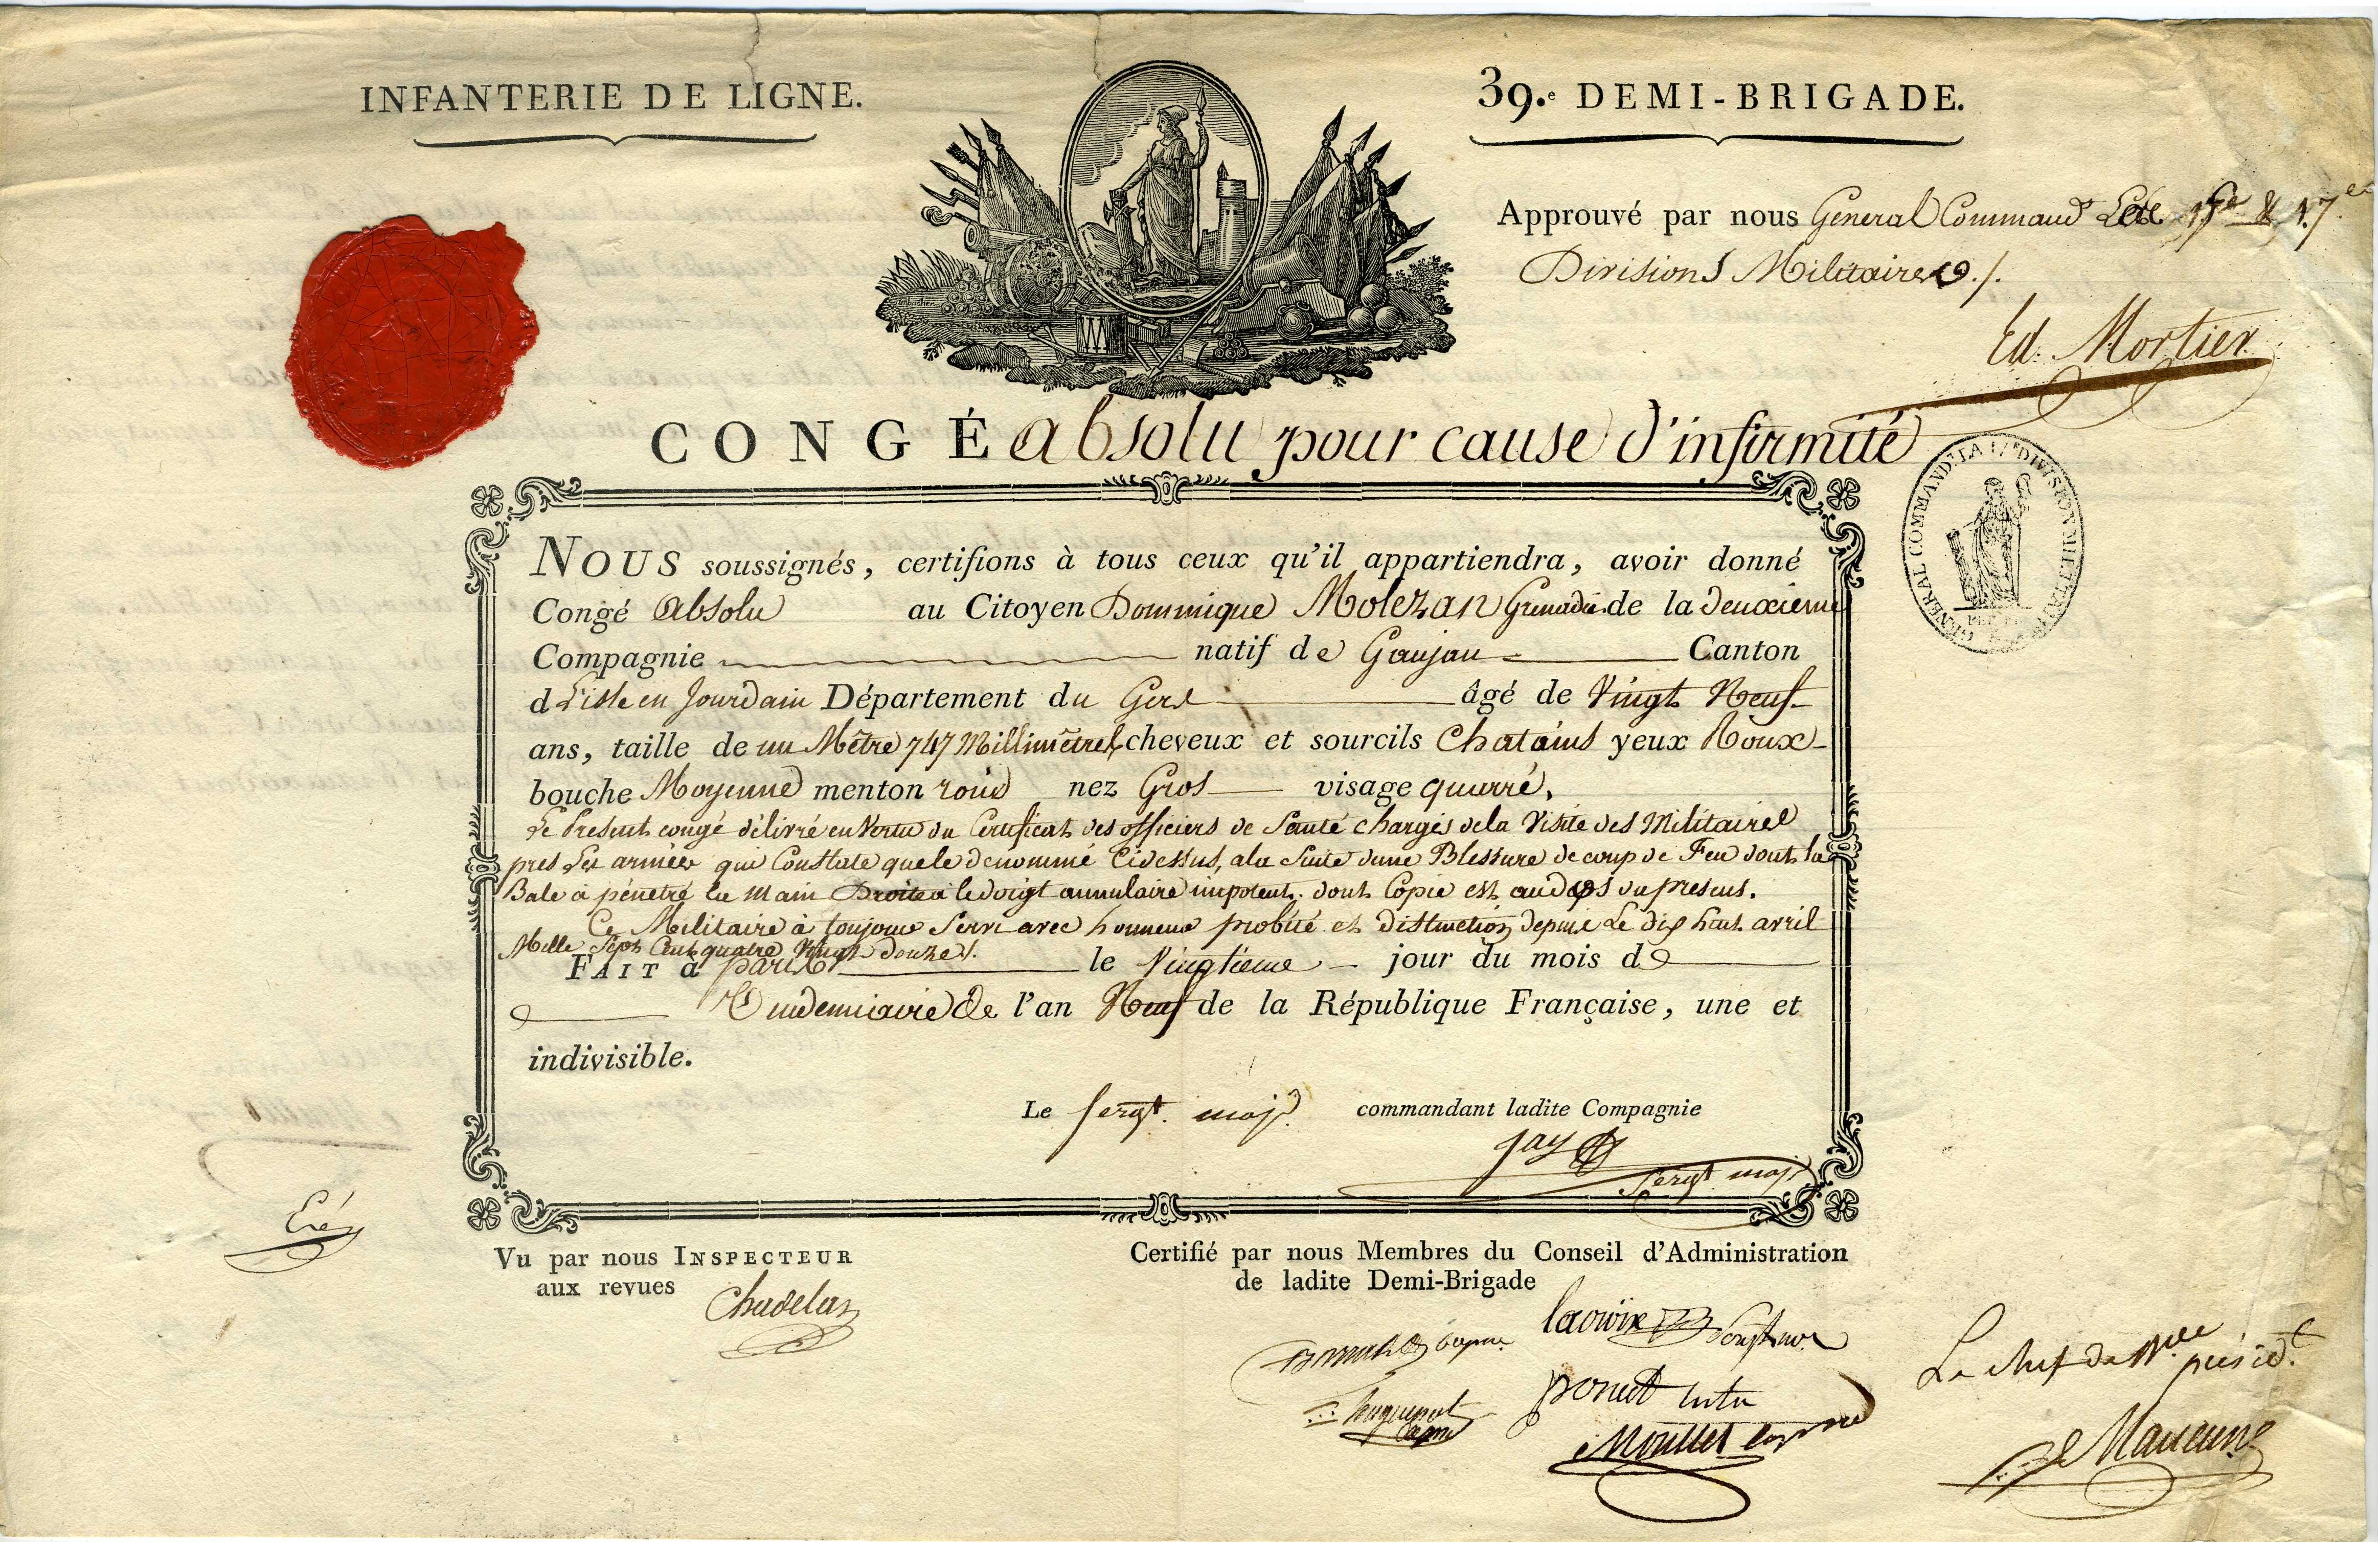 INFANTERIE DE LIGNE.
39.e DEMI-BRIGADE.
Approuvé par nous General Command.t Les 15.e & 17.es
Divisions Militaires ./.
Ed. Mortier
CONGÉ absolu pour cause d'infirmité
GENERAL COMMAND. LA 17e DIVISION MILITAIRE
NOUS soussignés, certifions à tous ceux qu'il appartiendra, avoir donné
Congé Absolu au Citoyen Dominique Molezan Grenadier de la deuxieme
Compagnie natif de Gaujau Canton
d L'isle en Jourdain Département du Gers âgé de Vingt Neuf
ans, taille de un Mètre 747 Millimètres cheveux et sourcils Chatains yeux Roux
bouche Moyenne menton rond nez Gros visage quarré,
Le Present congé délivré en Vertu du Certificat des officiers de Santé chargés de la Visite des Militaires
pres Les armées qui Constate que le denommé Cidessus, a la Suite dune Blessure de coup de Feu dont la
Bale a pénétré la Main Droite a le doigt annulaire impotent. dont Copie est au dos du present.
Ce Militaire à toujours Servi avec honneur probité et distinction depuis Le dix huit avril
Mille Sept Cent quatre Vingt Douze ./.
FAIT à paris le Vingtieme jour du mois de
Vendemiaire de l'an Neuf de la République Française, une et
indivisible.
Le sergt. maj. commandant ladite Compagnie
Jay
Sergt. maj.
Vu par nous INSPECTEUR
aux revues Chadelas
Certifié par nous Membres du Conseil d'Administration
de ladite Demi-Brigade
lacroix
huguenot
Moullet
Le chef de B.de présid.t
Maucune